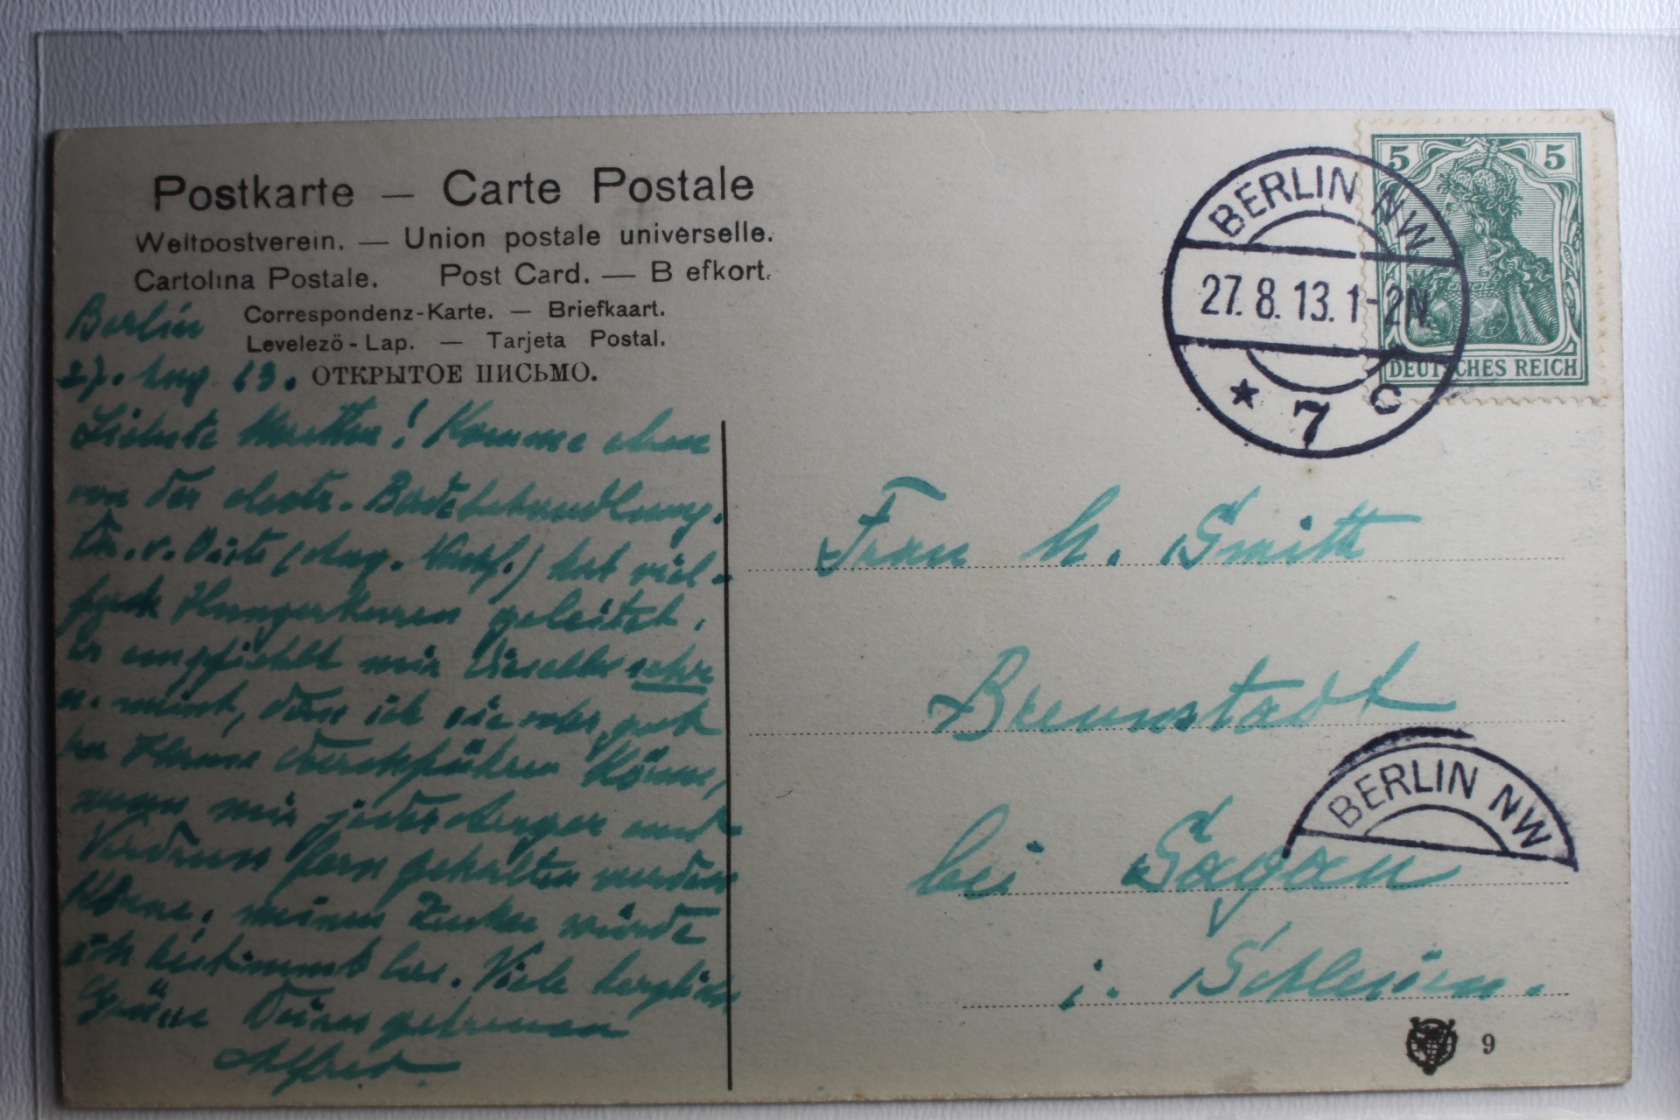 Postkarte — Carte Postale
Weltpostverein. — Union postale universelle.
Cartolina Postale. Post Card. — B efkort.
Correspondenz-Karte. — Briefkaart.
Levelezö-Lap. — Tarjeta Postal.
ОТКРЫТОЕ ПИСЬМО.
Berlin
27. Aug. 13.
Liebste ! Komme eben
von der electr. Badebehandlung.
Dr. v. hat viel-
fach Hungerkuren geleitet.
Er empfiehlt mir dieselbe sehr
u. meint, dass ich sie sehr gut
zu Hause durchführen könne,
wenn mir jeder Aerger und
Verdruss fern gehalten werden
könne; meinen Zucker würde
ich bestimmt los. Viele herzliche
Grüsse Deines getreuen
Alfred.
BERLIN NW
27.8.13.1-2N
* 7 c
5 5
DEUTSCHES REICH
Frau M. Smith
Brennstadt
bei Sagan
i. Schlesien.
BERLIN NW
9